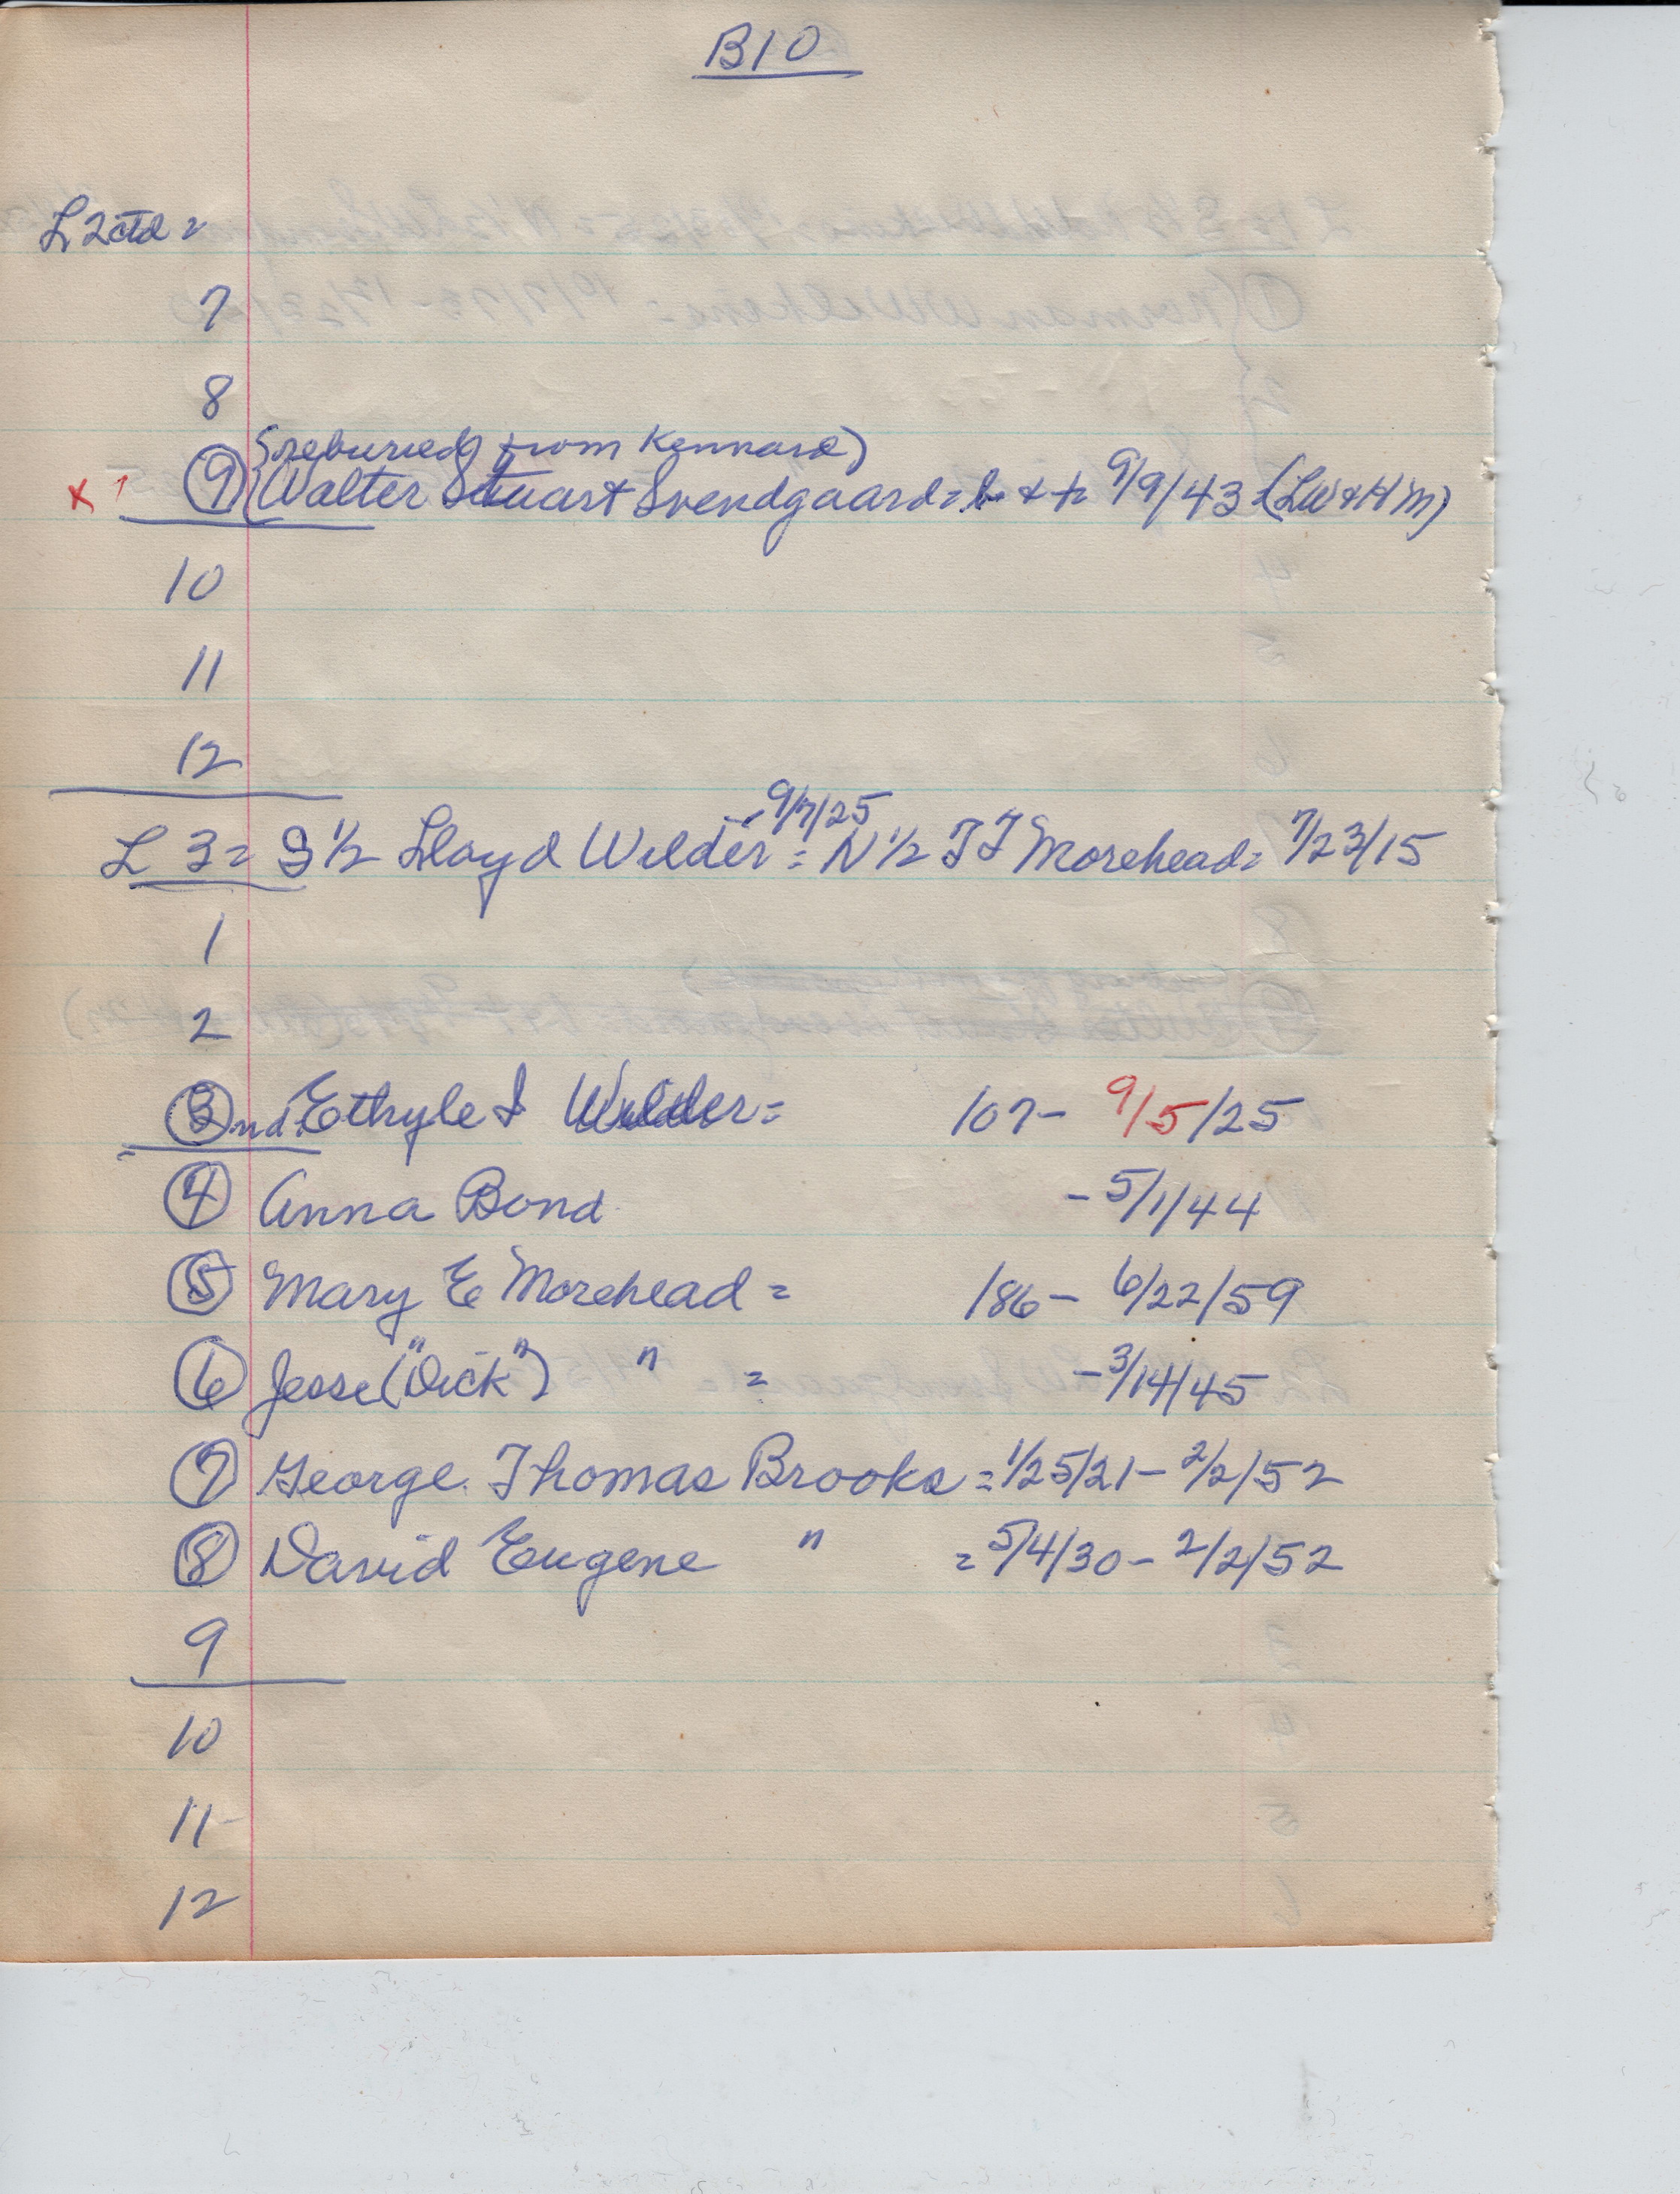 B10
L 2ctd =
7
8
(reburied from Kennard)
x 1 9 Walter Stuart Svendgaard = b & + 9/9/43 = (LW & H M)
10
11
12
9/7/25
L 3 = S 1/2 Lloyd Wilder = N 1/2 J J Morehead = 7/23/15
1
2
3 nd Ethyle I Wilder = 107 - 9/5/25
4 Anna Bond - 5/1/44
5 Mary E Morehead = 186 - 6/22/59
6 Jesse ("Dick") " = - 3/14/45
7 George Thomas Brooks = 1/25/21 - 2/2/52
8 David Eugene " = 5/4/30 - 2/2/52
9
10
11 -
12